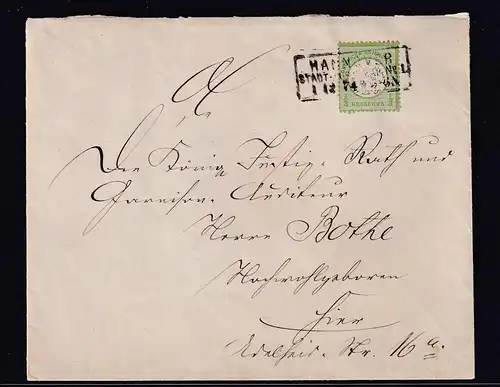 HAN V R
STADT-
1 12 74
GROSCHEN
An
Den König. Justiz-Rath und
Garnison-Auditeur
Herrn Bothe
Hochwohlgeboren
hier
Adelheid-Str. 16a.